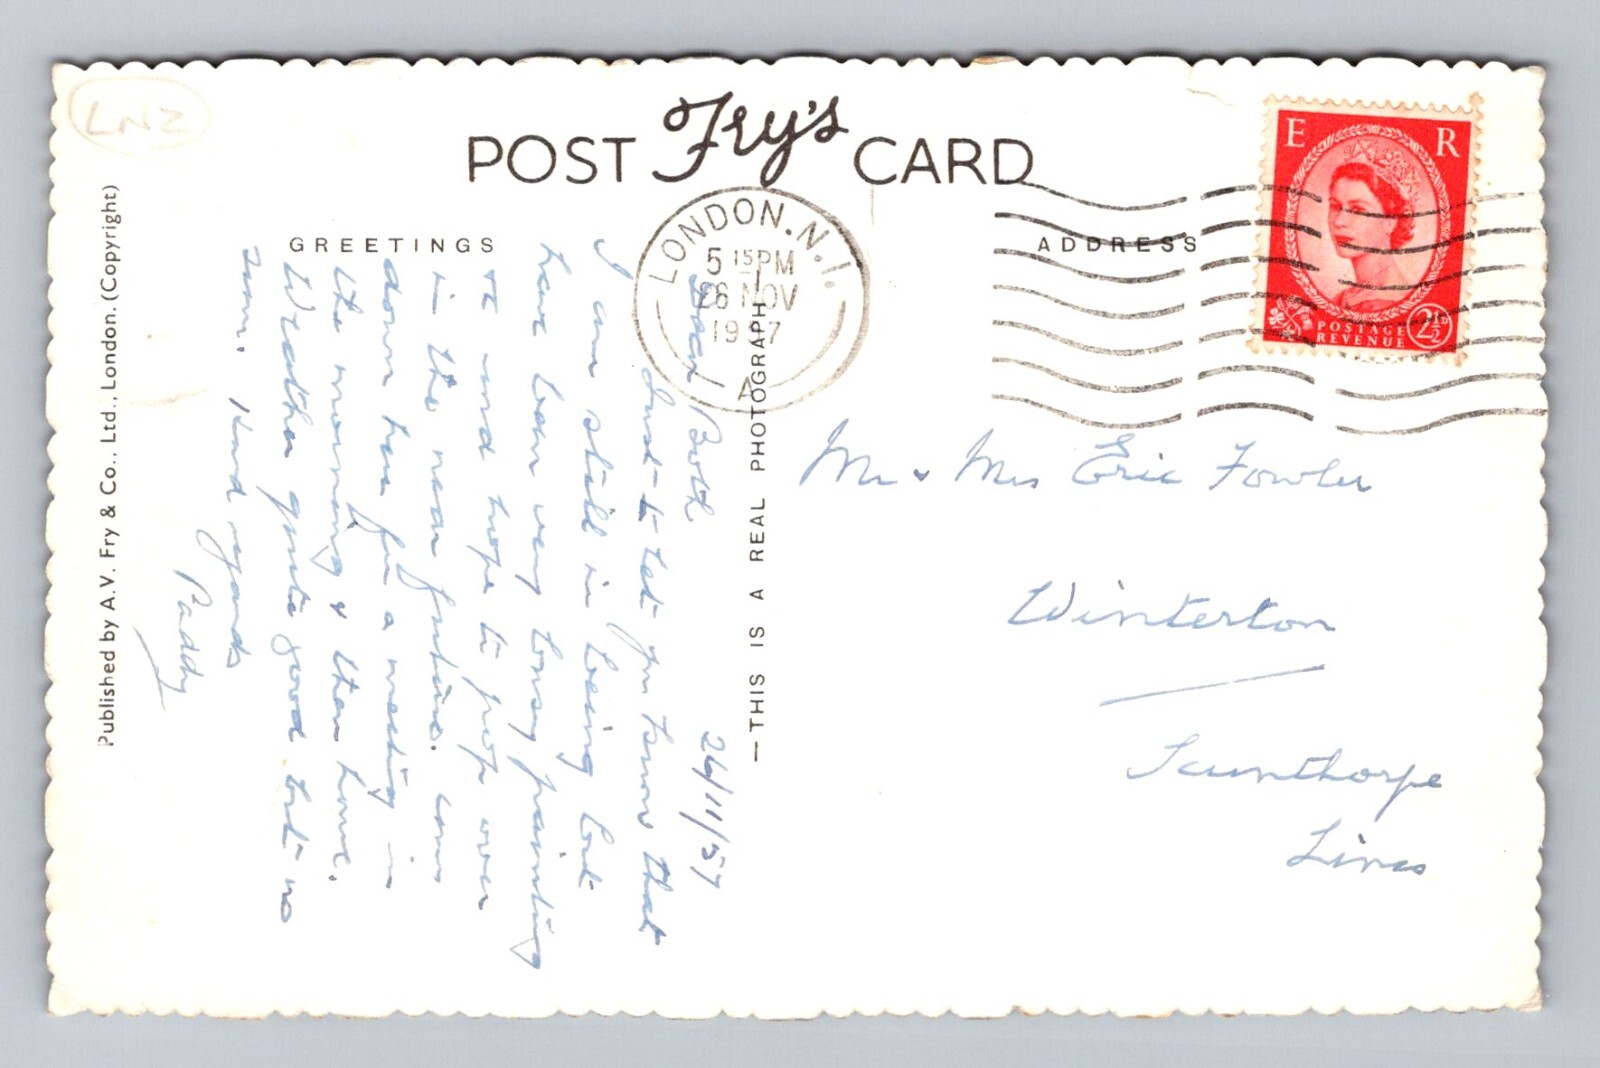 LNZ
POST Fry's CARD
GREETINGS
ADDRESS
LONDON. N.1.
5 15PM
26 NOV
1957
A
E R
POSTAGE
REVENUE
2½D
Published by A.V. Fry & Co., Ltd., London. (Copyright)
—THIS IS A REAL PHOTOGRAPH—
26/11/57
Dear Both
Just to let you know that
I am still in being but
have been very busy painting
etc and hope to pop over
in the near future. am
down here for a meeting in
the morning & then home.
Weather quite good but no
sun. Kind regards
Paddy
Mr & Mrs Eric Fowler
Winterton
Scunthorpe
Lincs